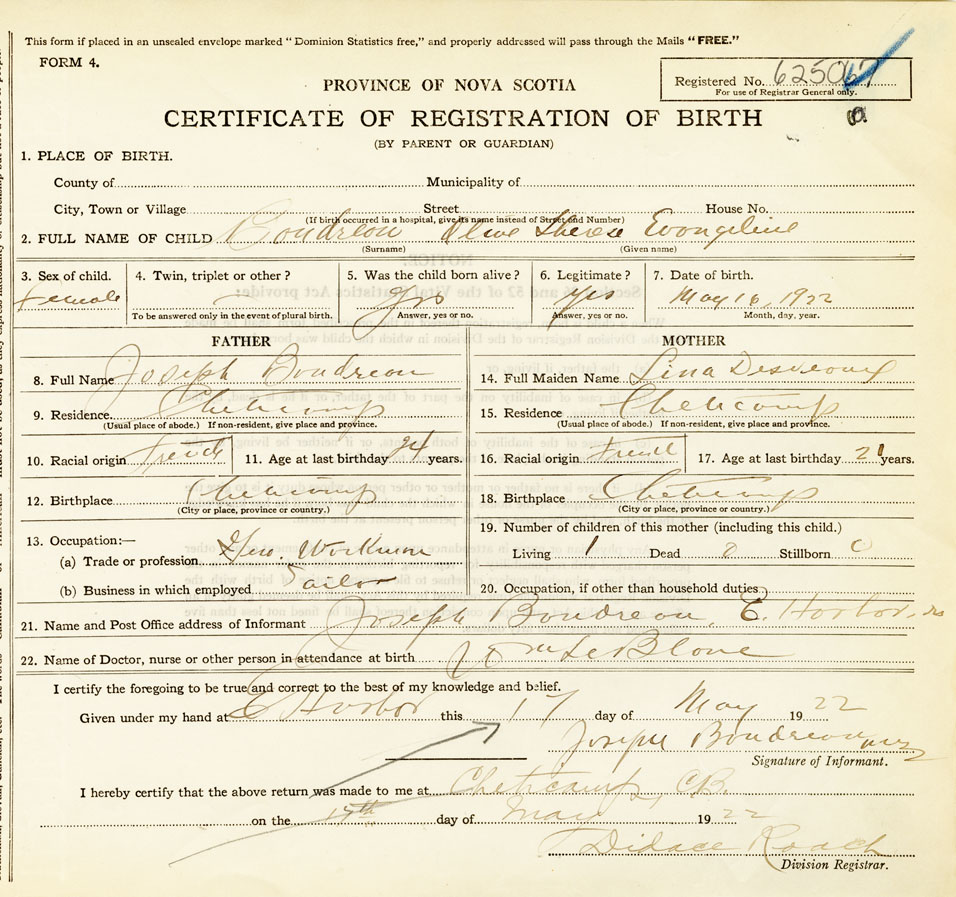 This form if placed in an unsealed envelope marked "Dominion Statistics free," and properly addressed will pass through the Mails "FREE."
FORM 4.
Registered No. 625067
For use of Registrar General only.
PROVINCE OF NOVA SCOTIA
CERTIFICATE OF REGISTRATION OF BIRTH
(BY PARENT OR GUARDIAN)
1. PLACE OF BIRTH.
County of Municipality of
City, Town or Village Street House No.
(If birth occurred in a hospital, give its name instead of Street and Number)
2. FULL NAME OF CHILD Boudreau Olive Therese Evangeline
(Surname) (Given name)
3. Sex of child. 4. Twin, triplet or other? 5. Was the child born alive? 6. Legitimate? 7. Date of birth.
Female — Yes yes May 16, 1922
To be answered only in the event of plural birth. Answer, yes or no. Answer, yes or no. Month, day, year.
FATHER MOTHER
8. Full Name Joseph Boudreau 14. Full Maiden Name Lina Desveaux
9. Residence. Cheticamp 15. Residence Cheticamp
(Usual place of abode.) If non-resident, give place and province. (Usual place of abode.) If non-resident, give place and province.
10. Racial origin French 11. Age at last birthday 24 years. 16. Racial origin French 17. Age at last birthday 21 years.
12. Birthplace Cheticamp 18. Birthplace Cheticamp
(City or place, province or country.) (City or place, province or country.)
13. Occupation:— 19. Number of children of this mother (including this child.)
(a) Trade or profession Gen. Workman Living 1 Dead Stillborn 0
(b) Business in which employed Sailor 20. Occupation, if other than household duties
21. Name and Post Office address of Informant Joseph Boudreau, E. Harbor, NS
22. Name of Doctor, nurse or other person in attendance at birth LeBlanc
I certify the foregoing to be true and correct to the best of my knowledge and belief.
Given under my hand at E Harbor this 17 day of May 1922
Joseph Boudreau
Signature of Informant.
I hereby certify that the above return was made to me at Cheticamp, C.B.
on the 17th day of May 1922
Didace Roach
Division Registrar.